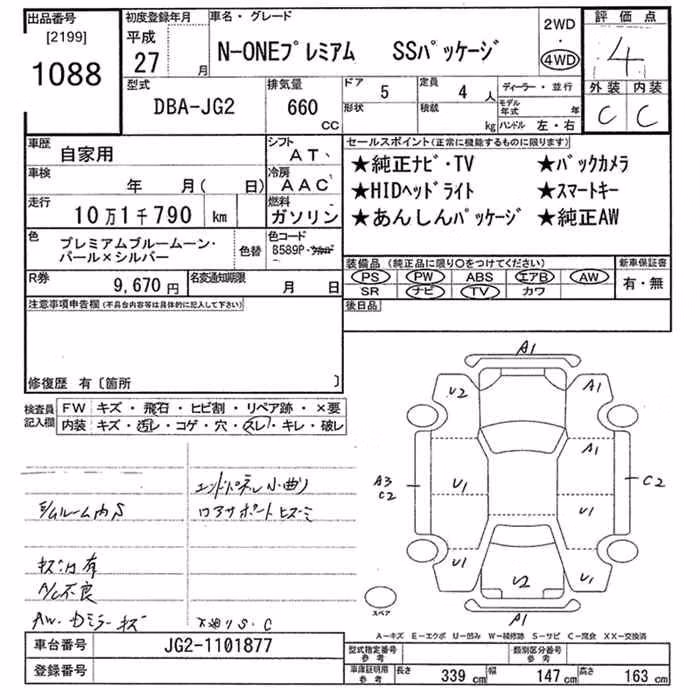 出品番号
[2199]
1088
初度登録年月
平成
27 月
車名・グレード
N-ONEプレミアム SSパッケージ
2WD
・
4WD
評価点
4
外装 内装
C C
型式
DBA-JG2
排気量
660
CC
ドア 5
定員 4 人
形状
積載 kg
ディーラー・並行
モデル年式 年
ハンドル 左・右
車歴
自家用
シフト
AT
車検
年 月( 日)
冷房
AAC
走行
10万1千790 km
燃料
ガソリン
色
プレミアムブルームーン・
パール×シルバー
色替
色コード
B589P
R券
9,670 円
名変通知期限
月 日
セールスポイント(正常に機能するものに限ります)
★純正ナビ・TV ★バックカメラ
★HIDヘッドライト ★スマートキー
★あんしんパッケージ ★純正AW
装備品(純正品に限り○をつけてください)
PS PW ABS エアB AW
SR ナビ TV カワ
新車保証書
有・無
後日品
注意事項申告欄(不具合内容等は具体的に記入して下さい)
修復歴 有〔箇所 〕
検査員
記入欄
FW キズ・飛石・ヒビ割・リペア跡・×要
内装 キズ・汚レ・コゲ・穴・スレ・キレ・破レ
エンドパネル小曲り
ラムルーム内S
コアサポートヒズミ
キズ凹有
A/C不良
AW・ミラーキズ
下廻りS・C
A1
U2 A1
A1
A3
C2
U1 U1
C2
U1 U1
U2
A1
スペア
A−キズ E−エクボ U−凹み W−補修跡 S−サビ C−腐食 XX−交換済
車台番号
JG2-1101877
登録番号
型式指定番号
参考
類別区分番号
参考
車庫証明用
参考
長さ 339 cm 幅 147 cm 高さ 163 cm